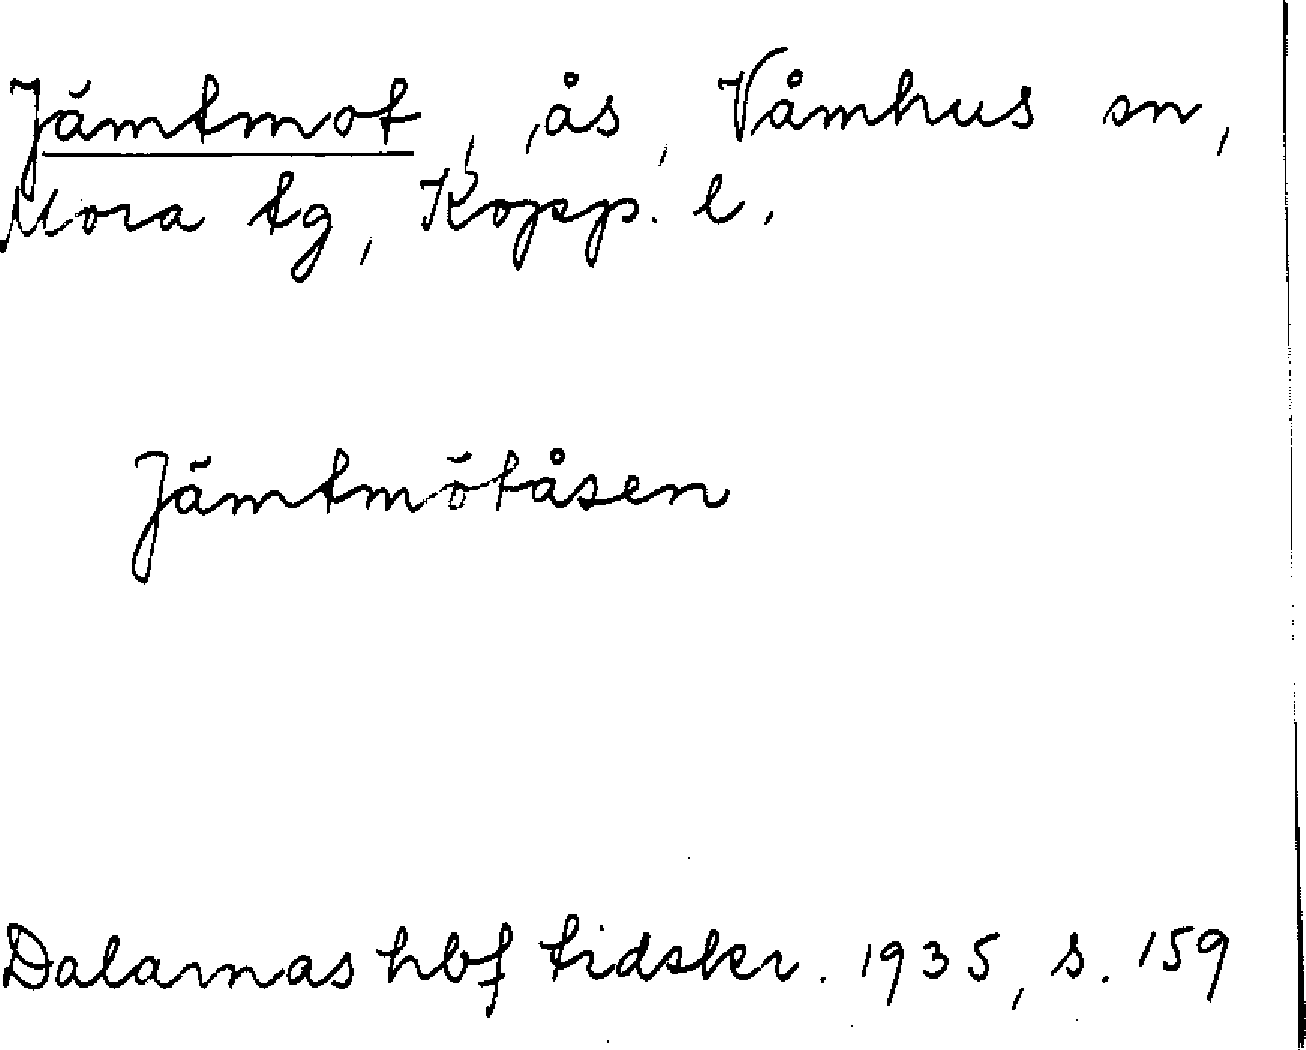 Jämtmot, ,ås, Våmhus sn,
Mora tg, Kopp. l.
Jämtmötåsen
Dalarnas hbf tidskr. 1935, s. 159